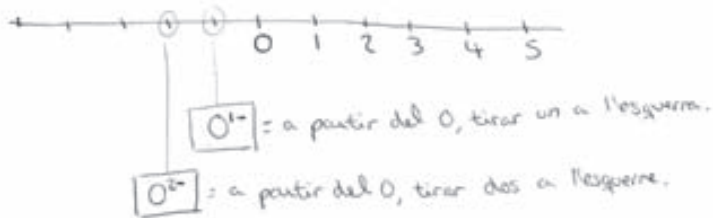 0 1 2 3 4 5
0¹⁻ = a partir del 0, tirar un a l'esquerra.
0²⁻ = a partir del 0, tirar dos a l'esquerre.